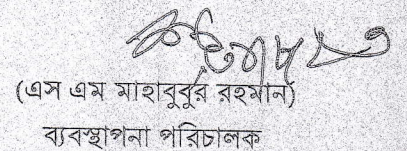 (এস এম মাহাবুবুর রহমান)
ব্যবস্থাপনা পরিচালক